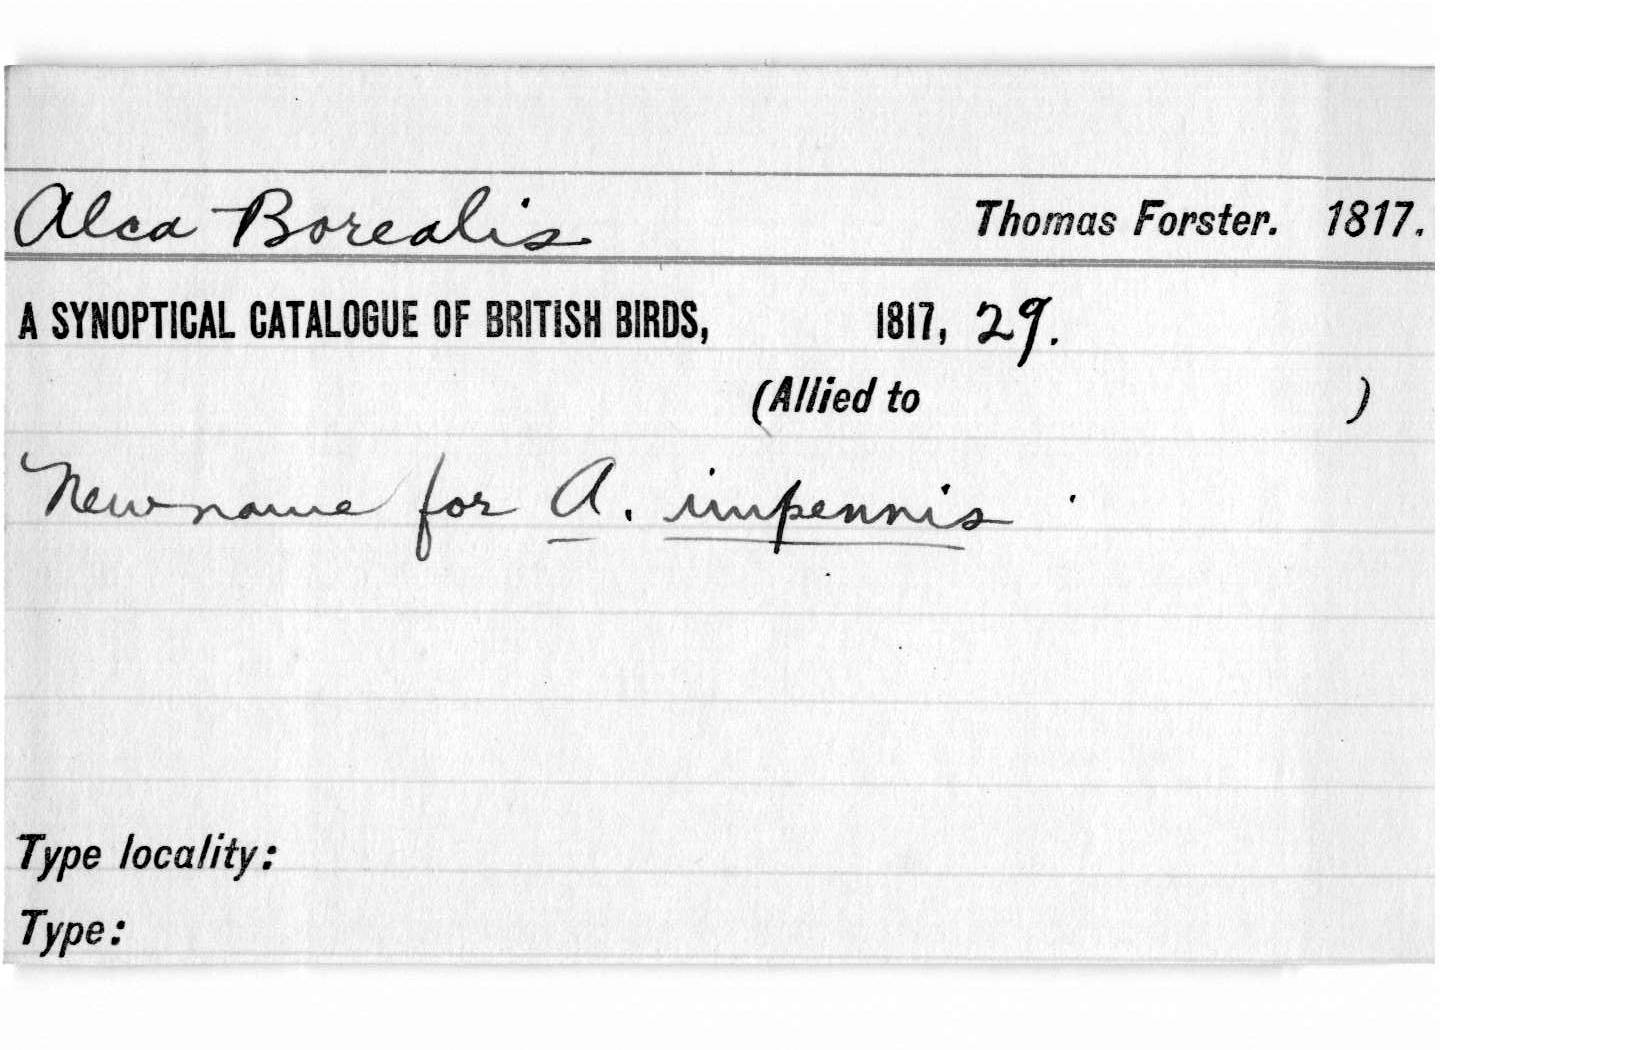 Alca Borealis Thomas Forster. 1817.
A SYNOPTICAL CATALOGUE OF BRITISH BIRDS, 1817, 29.
(Allied to )
New name for A. impennis
Type locality:
Type: